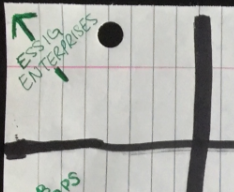 ESSIG
ENTERPRISES